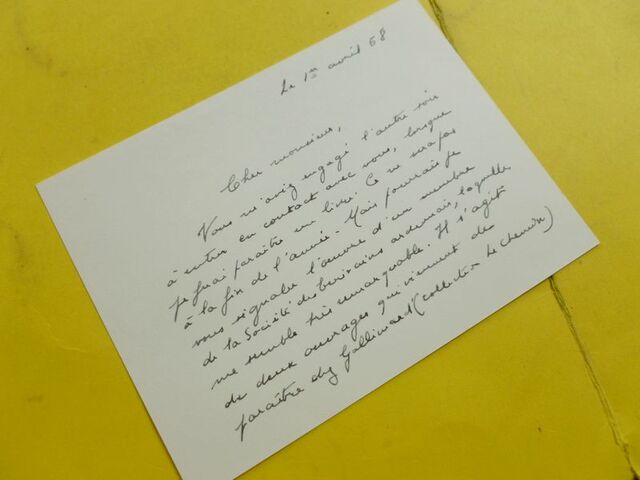 Le 1er avril 68
Cher monsieur,
Vous m'avez engagé l'autre soir
à entrer en contact avec vous, lorsque
je ferai paraître un livre. Ce ne sera pas
à la fin de l'année - Mais pourrais-je
vous signaler l'œuvre d'un membre
de la Société des écrivains ardennais, laquelle
me semble très remarquable. Il s'agit
de deux ouvrages qui viennent de
paraître chez Gallimard (collection Le Chemin)